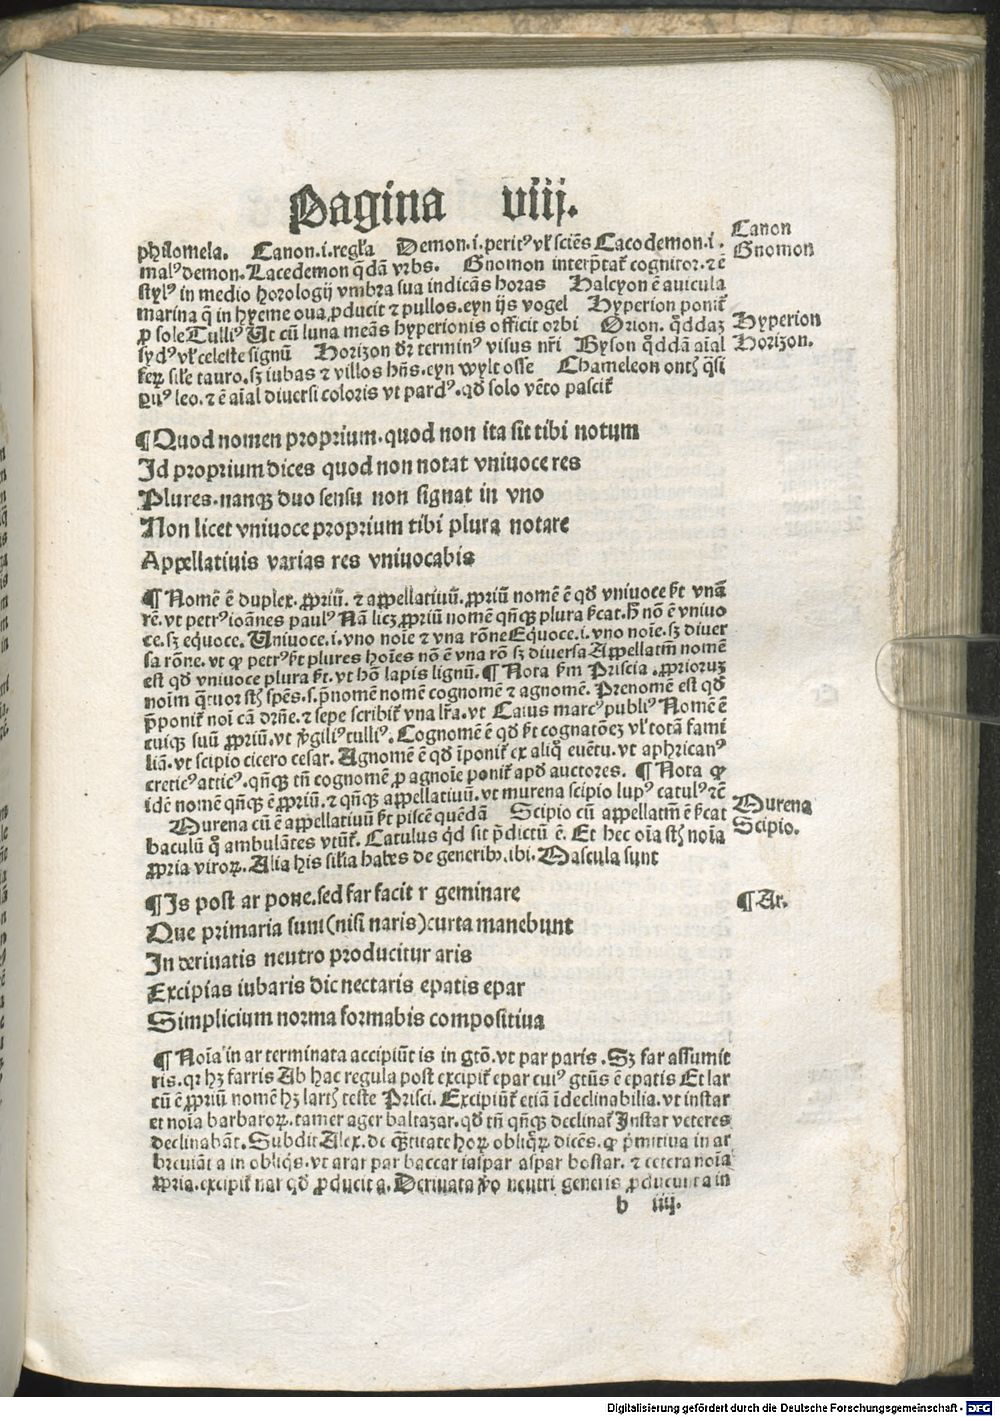 Pagina viij.
philomela. Canon.i.regła Demon.i.peritꝰ vł sciēs Cacodemon.i.
malꝰ demon. Lacedemon q̄dā vrbs. Gnomon interp̄tat̄ cognitor. ⁊ ē
stylꝰ in medio horologij vmbra sua indicās horas Halcyon ē auicula
marina q̄ in hyeme oua ꝓducit ⁊ pullos. eyn ijs vogel Hyperion ponit̄
ꝓ sole Tulliꝰ Ut cū luna meās hyperionis officit orbi Orion. q̄ddaz
sydꝰ vł celeste signū Horizon dr̄ terminꝰ visus nr̄i Byson q̄ddā aīal
ferꝝ siłe tauro. sꝫ iubas ⁊ villos hn̄s. eyn wylt osse Chameleon ontħ q̄si
leo. ⁊ ē aīal diuersi coloris vt pardꝰ. qđ solo vēto pascit̄
¶ Quod nomen proprium. quod non ita sit tibi notum
Id proprium dices quod non notat vniuoce res
Plures. nanqꝫ duo sensu non signat in vno
Non licet vniuoce proprium tibi plura notare
Appellatiuis varias res vniuocabis
¶ Nomē ē duplex. ꝓpriū. ⁊ appellatiuū. ꝓpriū nomē ē qđ vniuoce sīt vnā
rē. vt petrꝰ ioānes paulꝰ Nā licꝫ ꝓpriū nomē qn̄qꝫ plura sīcat. h̄ nō ē vniuo
ce. sꝫ equoce. Uniuoce .i. vno noīe ⁊ vna rōne Equoce .i. vno noīe. sꝫ diuer
sa rōne. vt ꝙ petrꝰ sīt plures hoīes nō ē vna rō sꝫ diuersa Appellatm̄ nomē
est qđ vniuoce plura sīt. vt hō lapis lignū. ¶ Nota sm̄ Priscia. ꝓprioruꝫ
noīm q̄tuor stħ spēs. s. p̄nomē nomē cognomē ⁊ agnomē. Prenomē est qđ
p̄ponit̄ noī cā dr̄ne. ⁊ sepe scribit̄ vna lr̄a. vt Caius marcꝰ publiꝰ Nomē ē
cuiqꝫ suū ꝓpriū. vt v̄giliꝰ tulliꝰ. Cognomē ē qđ sīt cognatōeꝫ vł totā fami
liā. vt scipio cicero cesar. Agnomē ē qđ īponit̄ ex aliq̄ euētu. vt aphricanꝰ
creticꝰ atticꝰ. qn̄qꝫ tn̄ cognomē ꝓ agnoīe ponit̄ apđ auctores. ¶ Nota ꝙ
idē nomē qn̄qꝫ ē ꝓpriū. ⁊ qn̄qꝫ appellatiuū. vt murena scipio lupꝰ catulꝰ ⁊cē
Murena cū ē appellatiuū sīt piscē quēdā Scipio cū appellatm̄ ē sīcat
baculū q̄ ambulātes vtūt̄. Catulus q̄d sit p̄dictū ē. Et hec oīa stħ noīa
ꝓpria viroꝝ. Alia his siłia habes de generibꝫ. ibi. Mascula sunt
¶ Is post ar pone. sed far facit r geminare
Que primaria sunt (nisi naris) curta manebunt
In deriuatis neutro producitur aris
Excipias iubaris dic nectaris epatis epar
Simplicium norma formabis compositiua
¶ Noīa in ar terminata accipiūt is in gtō. vt par paris. Sꝫ far assumit
ris. qr hꝫ farris Ab hac regula post excipit̄ epar cuiꝰ gtūs ē epatis Et lar
cū ē ꝓpriū nomē hꝫ lartħ teste Prisci. Excipiūt̄ etiā īdeclinabilia. vt instar
et noīa barbaroꝝ. tamer ager baltazar. qđ tn̄ qn̄qꝫ declinat̄ Instar veteres
declinabāt. Subdit Alex. de q̄titate hoꝝ obliq̄ꝝ dicēs. ꝙ p̄mitiua in ar
breuiāt a in obliqꝭs. vt arar par baccar iaspar aspar bostar. ⁊ cetera noīa
ꝓpria. excipit̄ nar qđ ꝓducit a. Deriuata v̄o neutri generis ꝓducunt a in
b iiij.
Canon
Gnomon
Hyperion
Horizon.
Murena
Scipio.
¶ Ar.
Digitalisierung gefördert durch die Deutsche Forschungsgemeinschaft - DFG